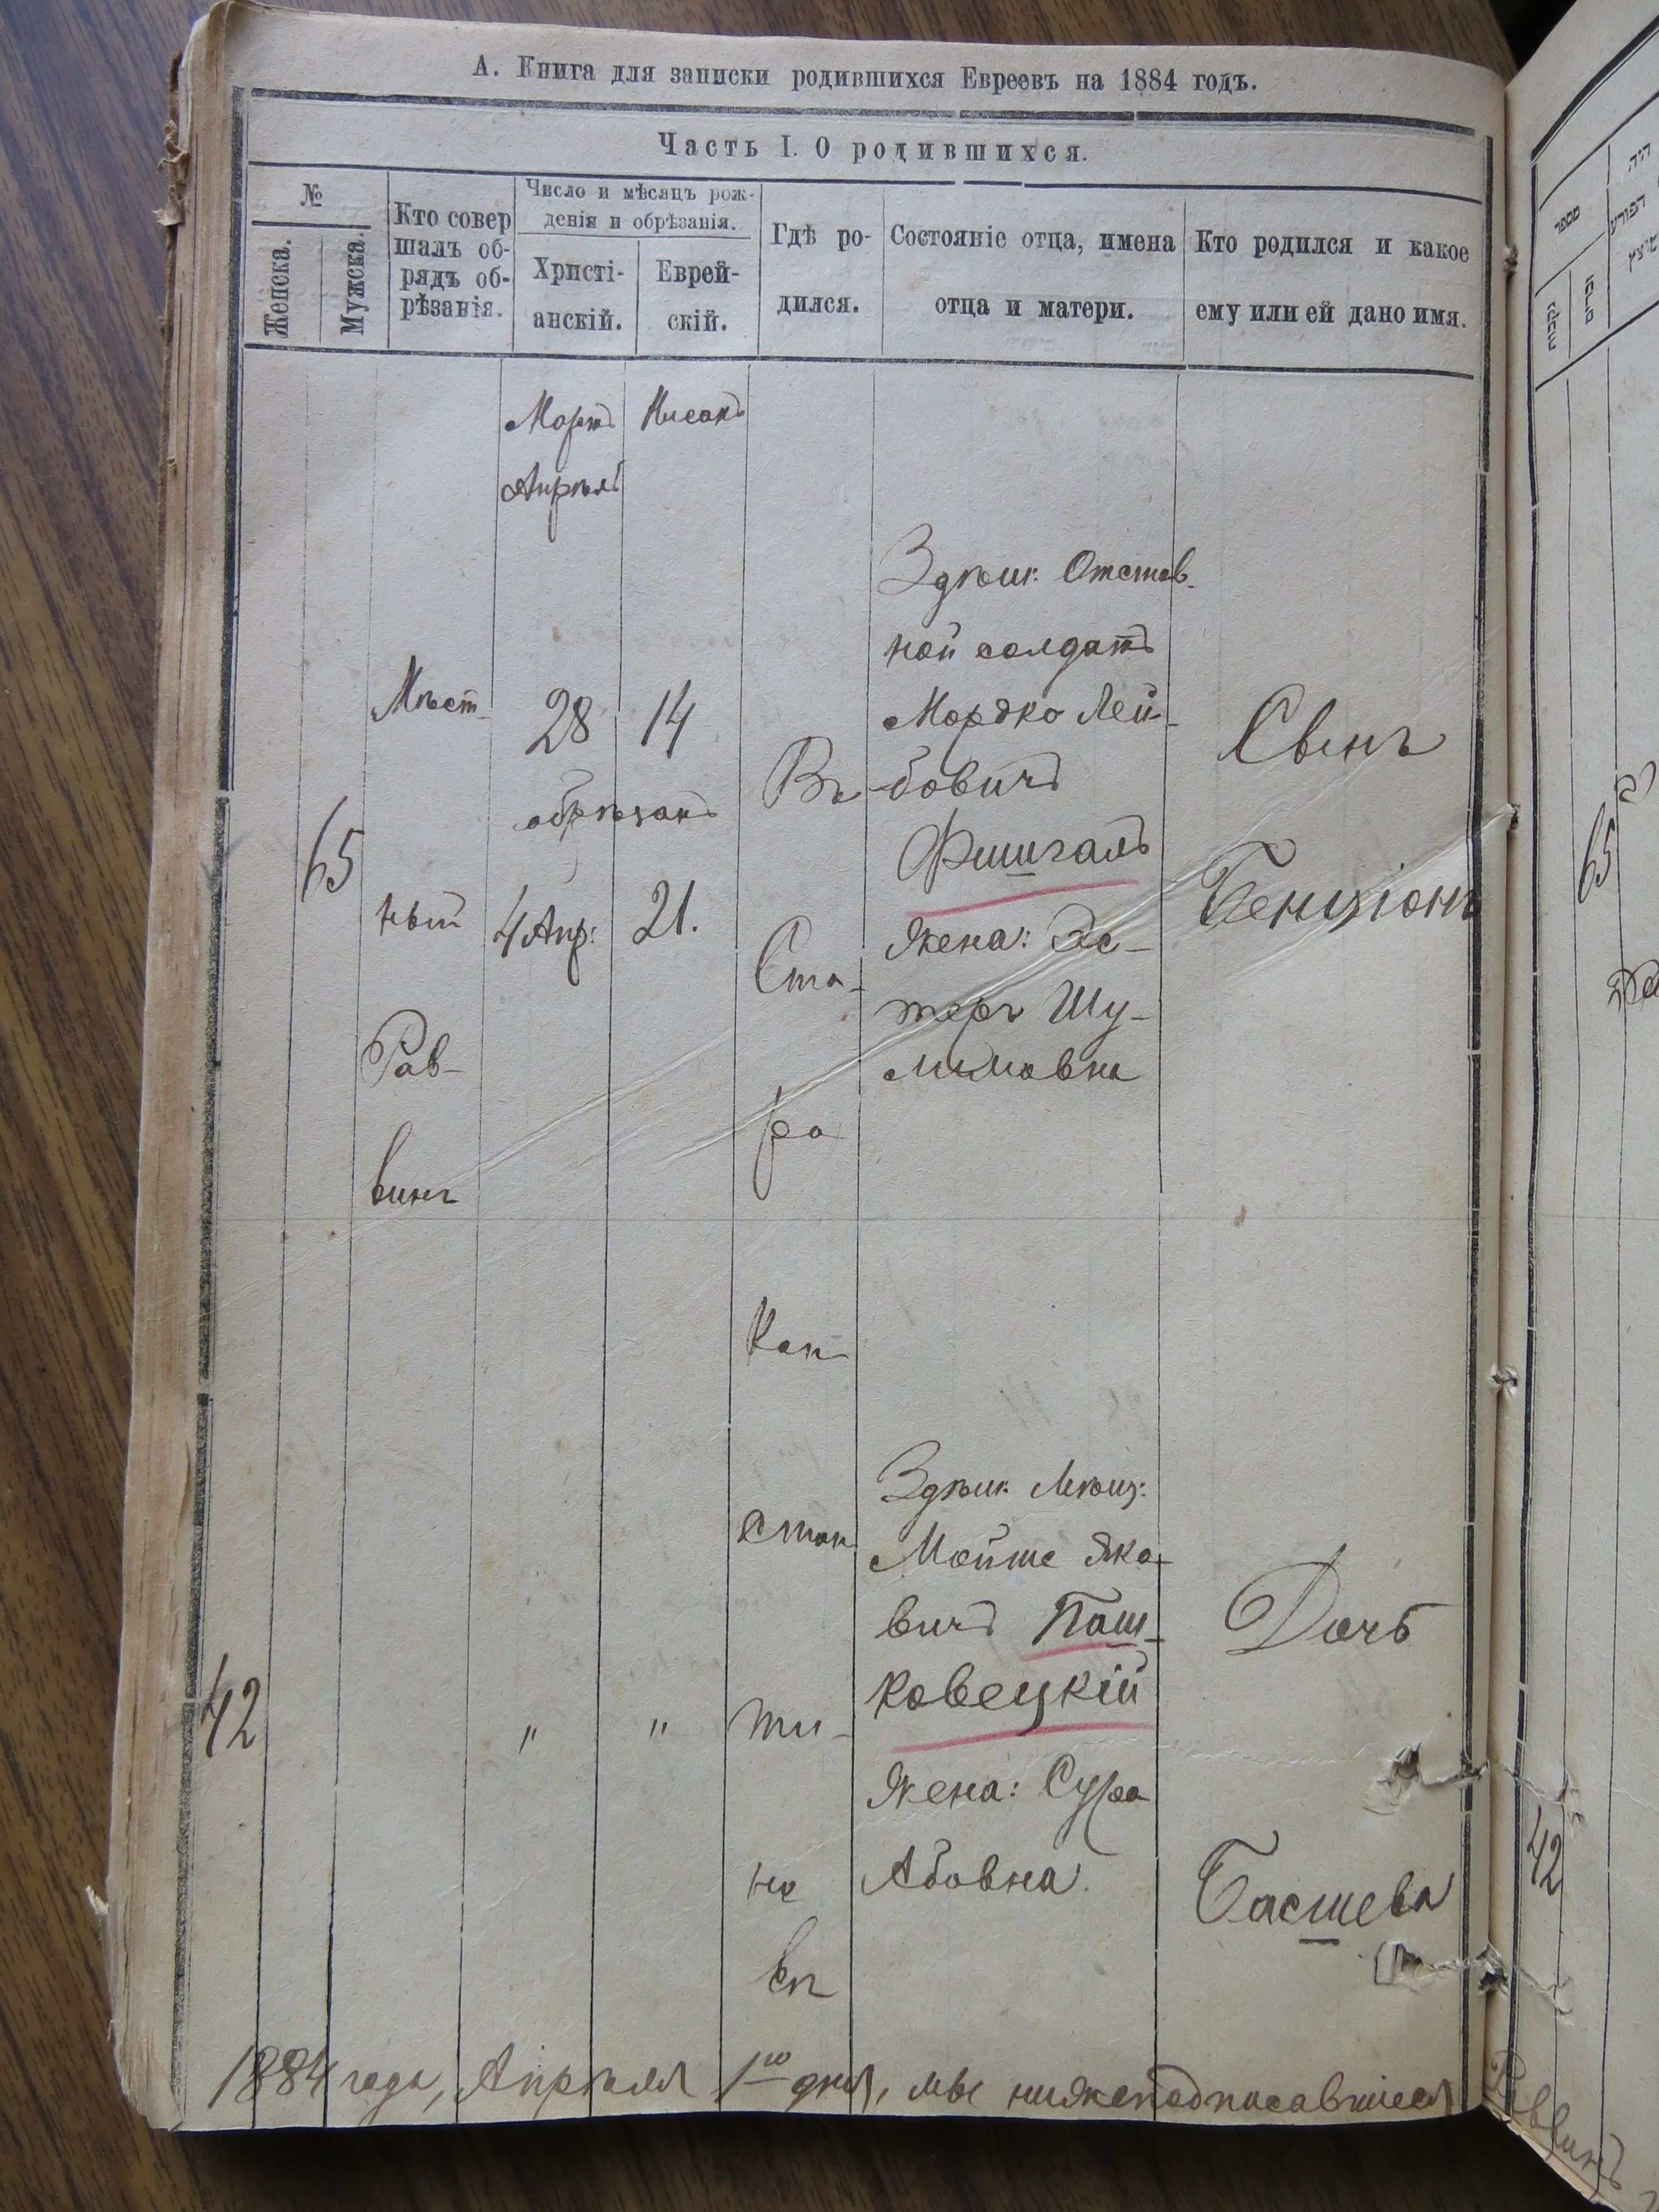 А. Книга для записки родившихся Евреевъ на 1884 годъ.
Часть I. О родившихся.
№
Женска.
Мужска.
Кто совер
шалъ об-
рядъ об-
рѣзанія.
Число и мѣсяцъ рож-
денія и обрѣзанія.
Христі-
анскій.
Еврей-
скій.
Гдѣ ро-
дился.
Состояніе отца, имена
отца и матери.
Кто родился и какое
ему или ей дано имя.
Мартъ
Апрѣль
Нисанъ
65
Мѣст-
ный
Рав-
винъ
28
14
обрѣзанъ
4 Апр:
21.
Въ
Ста-
ро
Кон
стан
ти-
но
вѣ
Здѣш: Отстав-
ной солдатъ
Мордко Лей-
бовичъ
Фишгалъ
Жена: Эс-
теръ Шу-
лимовна
Сынъ
Бенціонъ
42
"
"
Здѣш: Мѣщ:
Мойше Яко-
вичъ Паш-
ковецкій
Жена: Сура
Абовна.
Дочь
Басшева
1884 года, Апрѣля 1го дня, мы нижеподписавшіеся
מספר
65
42